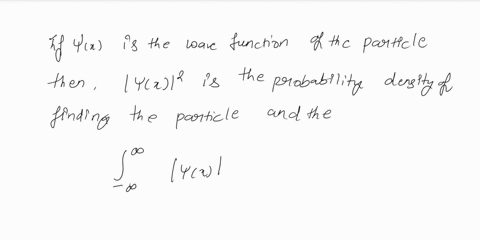 If ψ(x) is the wave function of the particle
then, |ψ(x)|² is the probability density of
finding the particle and the
∫_{-∞}^{∞} |ψ(x)|